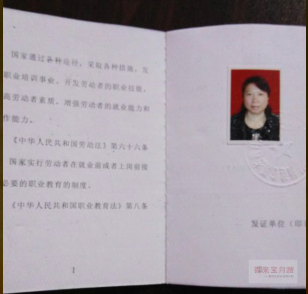 国家通过各种途径，采取各种措施，发
职业培训事业，开发劳动者的职业技能，
高劳动者素质，增强劳动者的就业能力和
作能力。
《中华人民共和国劳动法》第六十六条
国家实行劳动者在就业前或者上岗前接
必要的职业教育的制度。
《中华人民共和国职业教育法》第八条
1
发证单位（印